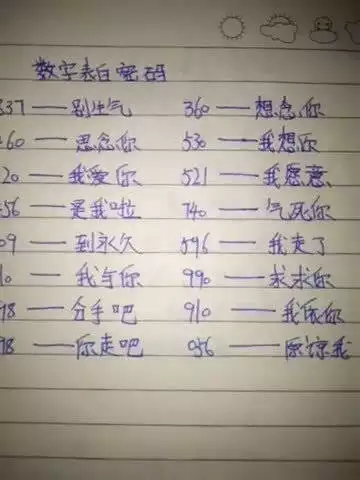 数字表白密码
837——别生气 360——想念你
460——思念你 530——我想你
20——我爱你 521——我愿意
456——是我啦 740——气死你
09——到永久 596——我走了
10——我与你 990——求求你
98——分手吧 910——我依你
98——你走吧 056——原谅我